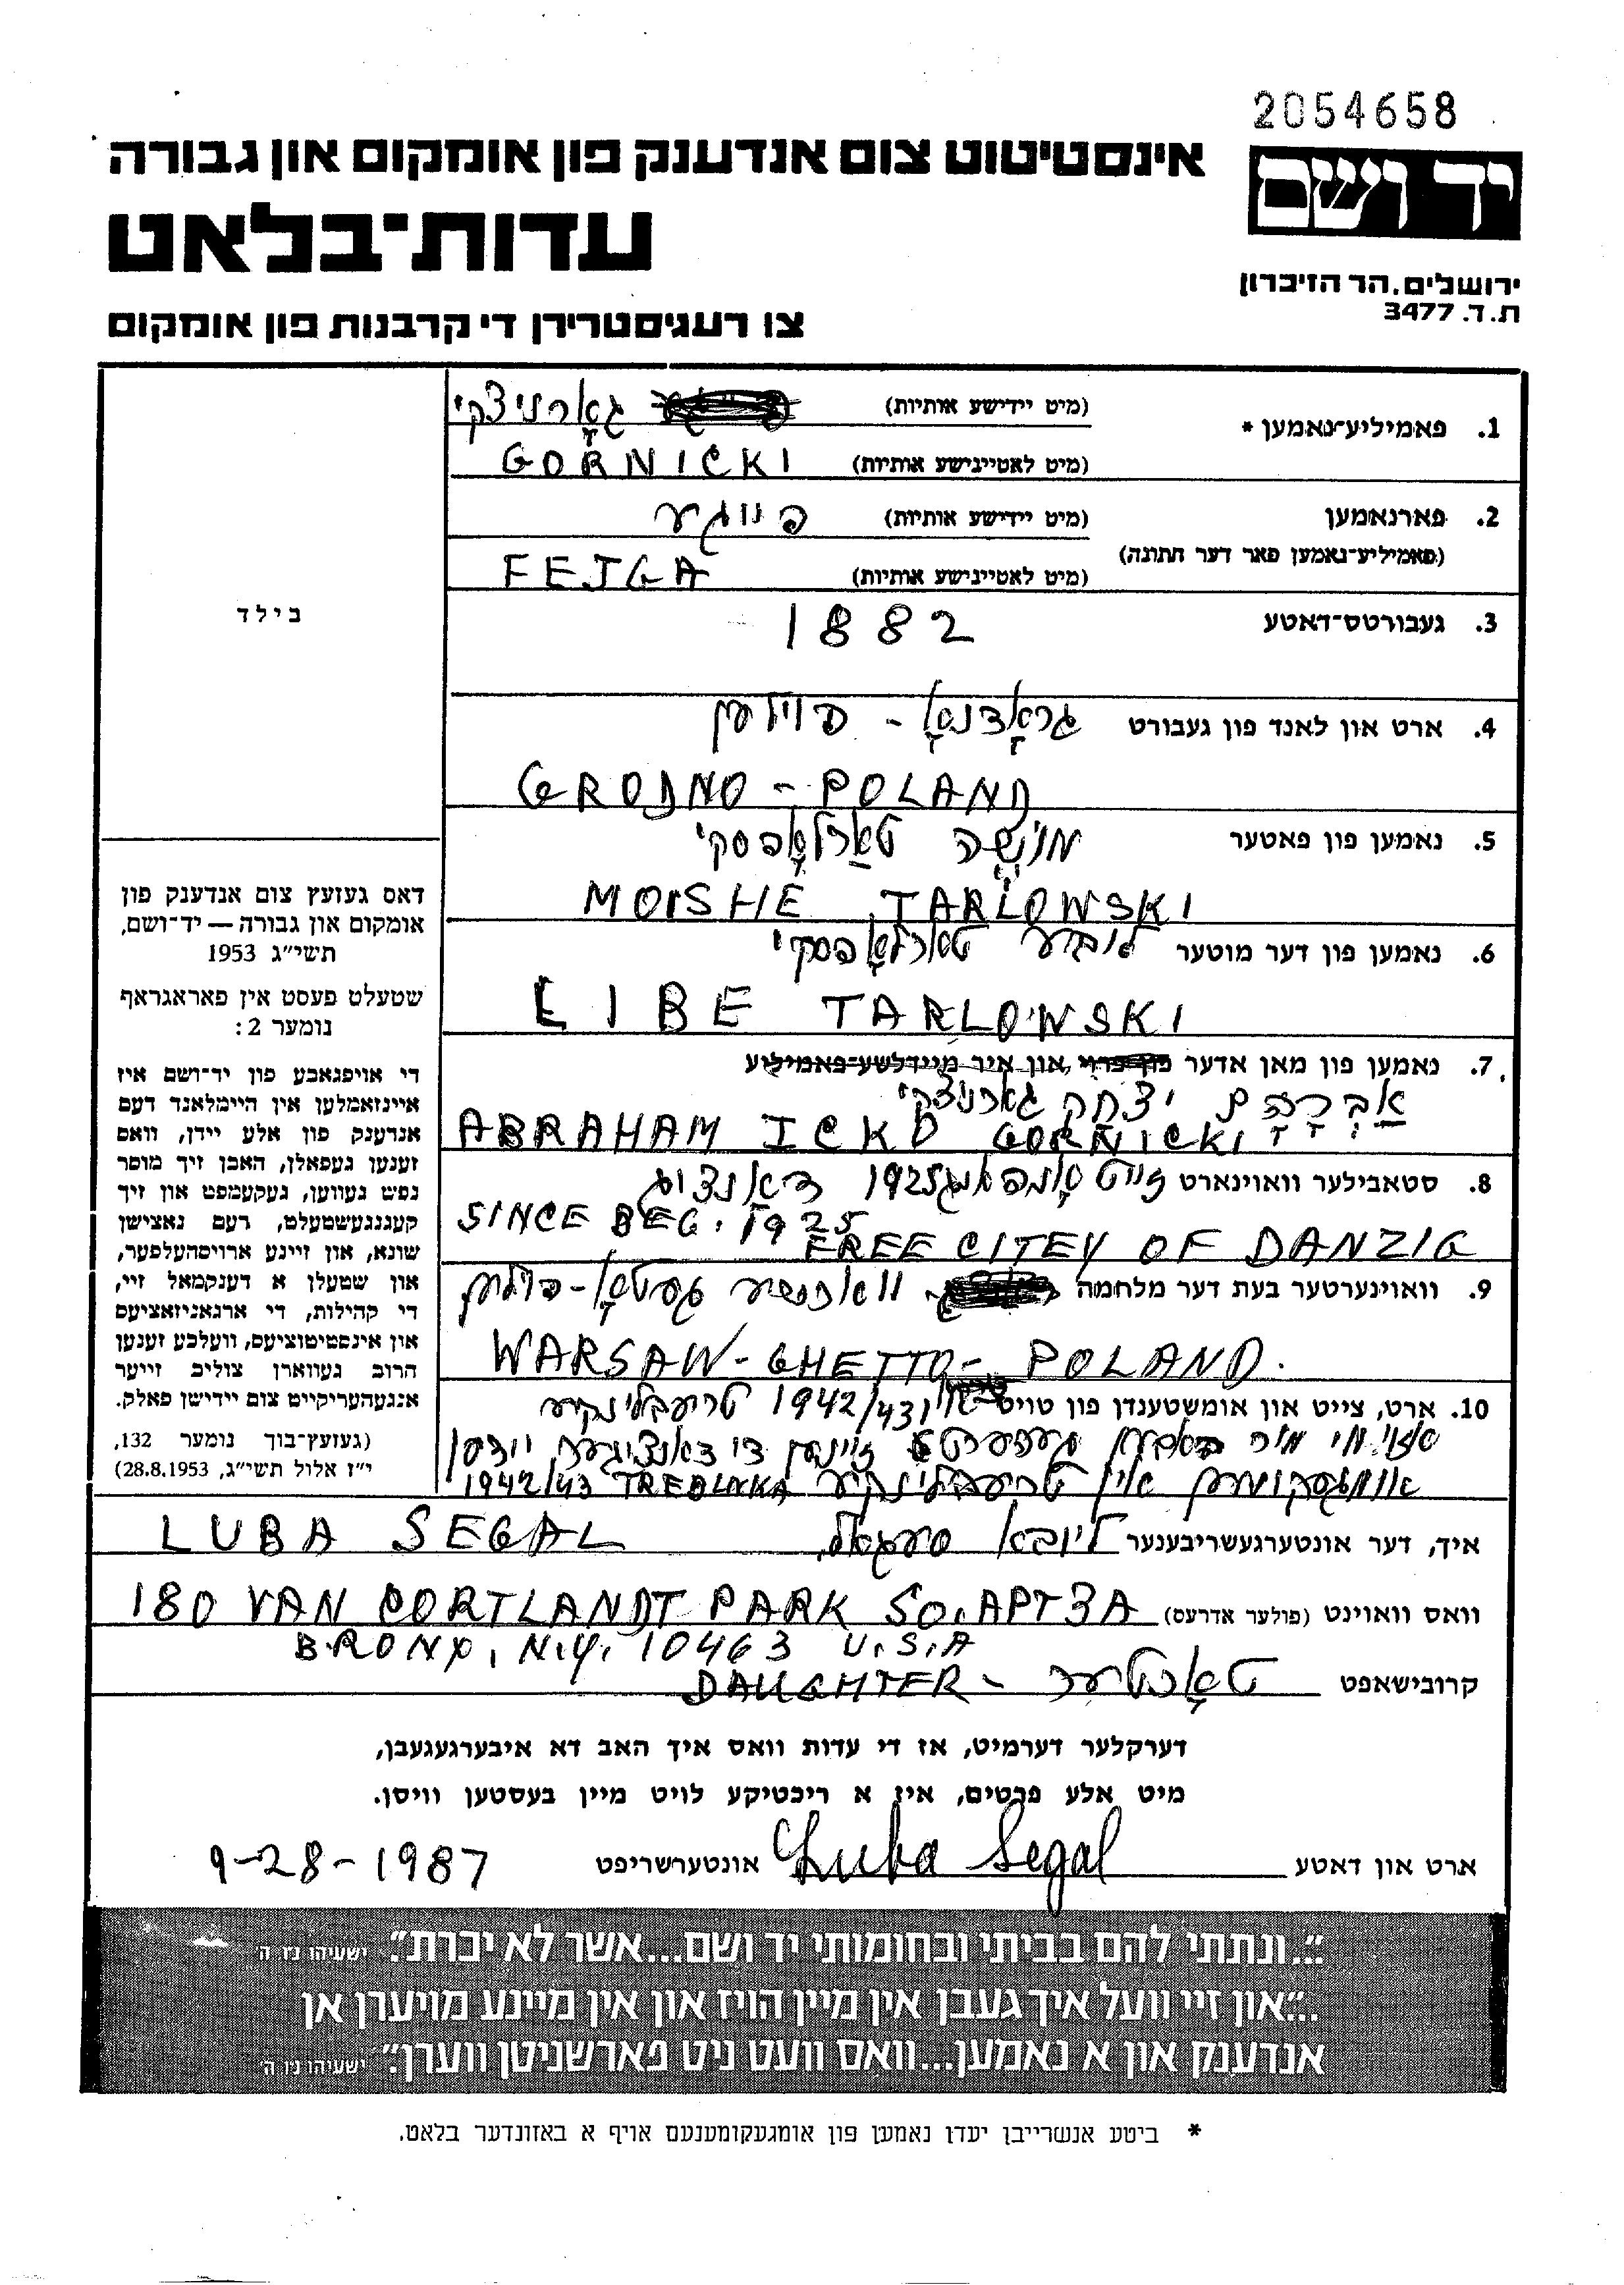 2054658
יד ושם
ירושלים. הר הזיכרון
ת. ד. 3477
אינסטיטוט צום אנדענק פון אומקום און גבורה
עדות־בלאט
צו רעגיסטרירן די קרבנות פון אומקום
1. פאמיליע־נאמען * (מיט יידישע אותיות) גאָרניצקי
(מיט לאטיינישע אותיות) GORNICKI
2. פארנאמען (מיט יידישע אותיות) פייגע
(פאמיליע־נאמען פאר דער חתונה)
(מיט לאטיינישע אותיות) FEJGA
3. געבורטס־דאטע 1882
4. ארט און לאנד פון געבורט גראָדנאָ - פוילען
GRODNO - POLAND
5. נאמען פון פאטער מוֹשֶׁה טאַרלאָפסקי
MOISHE TARLOWSKI
6. נאמען פון דער מוטער ליבע טארלאָפסקי
LIBE TARLOWSKI
7. נאמען פון מאן אדער פון פרוי, און איר מיידלשע־פאמיליע
אַבְרָהָם יצחק גארניצקי
ABRAHAM ICKO GORNICKI
8. סטאבילער וואוינארט זייט אָנפאנג 1925 דאנציג
SINCE BEG. 1925
FREE CITEY OF DANZIG
9. וואוינערטער בעת דער מלחמה ווארשע געטאָ - פוילען
WARSAW - GHETTO - POLAND.
10. ארט, צייט און אומשטענדן פון טויט 1942/43 טריעבלינקיע
אזוי ווי מיר האבען זיינען די דאנציגער יודען
אומגעקומען אין טריעבלינקיע 1942/43 TREBLINKA
בילד
דאס געזעץ צום אנדענק פון
אומקום און גבורה — יד־ושם,
תשי״ג 1953
שטעלט פעסט אין פאראגראף
נומער 2:
די אויפגאבע פון יד־ושם איז
איינזאמלען אין היימלאנד דעם
אנדענק פון אלע יידן, וואס
זענען געפאלן, האבן זיך מוסר
נפש געווען, געקעמפט און זיך
קעגנגעשטעלט, דעם נאצישן
שונא, און זיינע ארויסהעלפער,
און שטעלן א דענקמאל זיי,
די קהילות, די ארגאניזאציעס
און אינסטיטוציעס, וועלכע זענען
הרוב געווארן צוליב זייער
אנגעהעריקייט צום יידישן פאלק.
(געזעץ־בוך נומער 132,
י״ז אלול תשי״ג, 28.8.1953)
איך, דער אונטערגעשריבענער ליובא סעגאל, LUBA SEGAL
וואס וואוינט (פולער אדרעס) 180 VAN CORTLANDT PARK SO. APT 3A
BRONX, N.Y. 10463 U.S.A
קרובישאפט טאָכטער - DAUGHTER
דערקלער דערמיט, אז די עדות וואס איך האב דא איבערגעגעבן,
מיט אלע פרטים, איז א ריכטיקע לויט מיין בעסטען וויסן.
ארט און דאטע Luba Segal אונטערשריפט 9-28-1987
"...ונתתי להם בביתי ובחומותי יד ושם...אשר לא יכרת". ישעיהו נ״ו ה׳
..."און זיי וועל איך געבן אין מיין הויז און אין מיינע מויערן אן
אנדענק און א נאמען...וואס וועט ניט פארשניטן ווערן." ישעיהו נ״ו ה׳
* ביטע אנשרייבן יעדן נאמען פון אומגעקומענעם אויף א באזונדער בלאט.